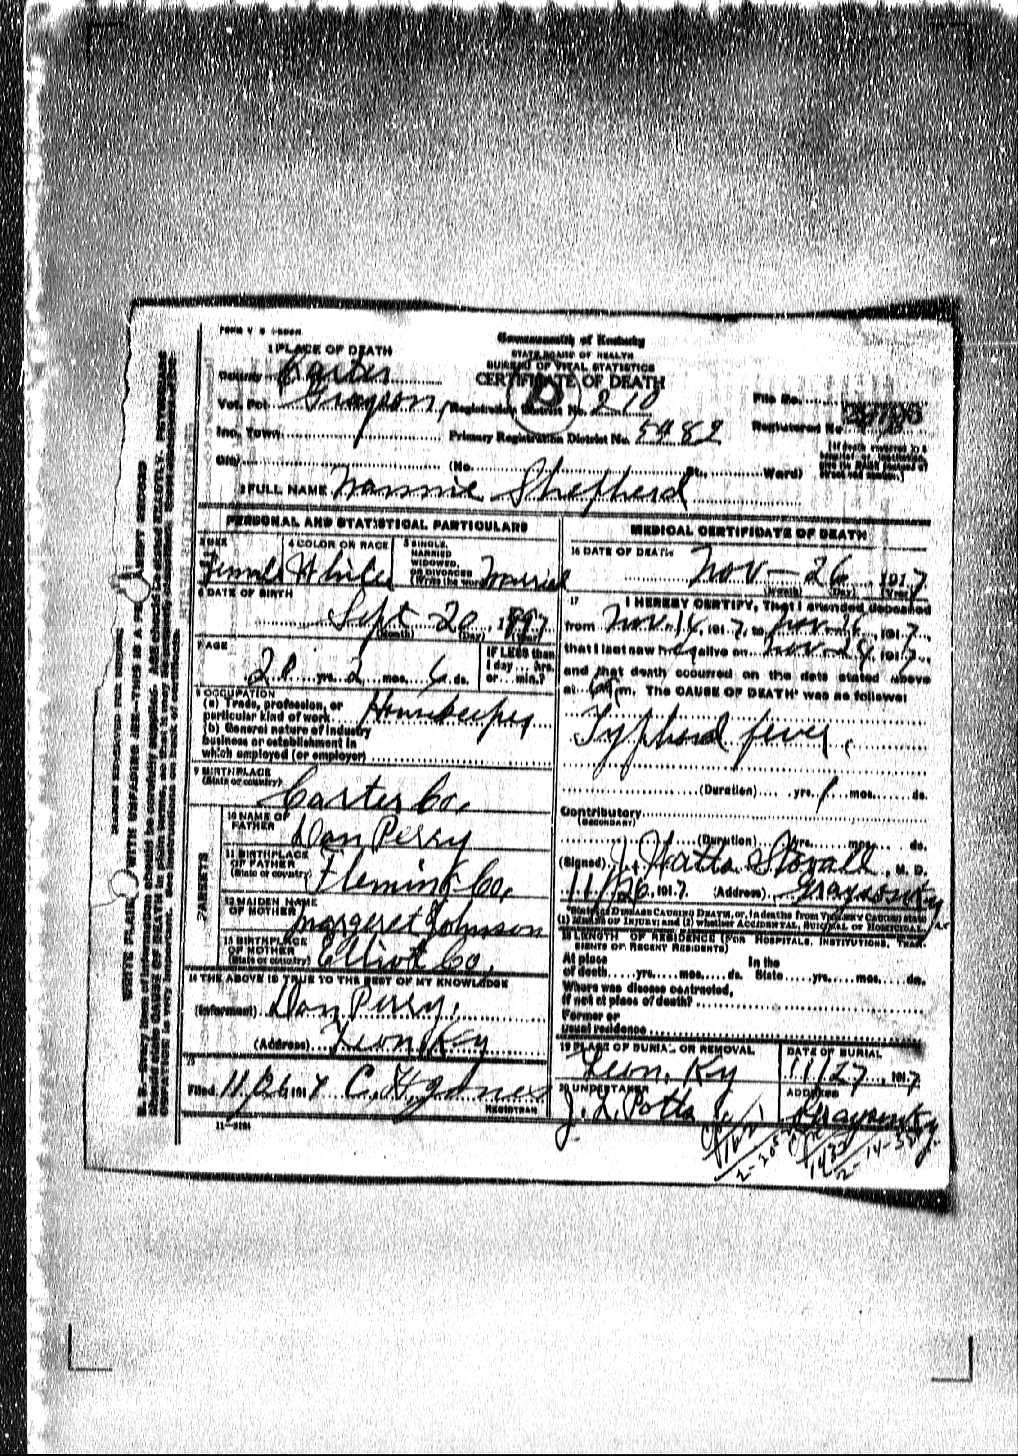 1 PLACE OF DEATH
Commonwealth of Kentucky
STATE BOARD OF HEALTH
BUREAU OF VITAL STATISTICS
CERTIFICATE OF DEATH
County Carter
Vot. Pct. Grayson, Registration District No. 210
File No.
Inc. Town Primary Registration District No. 5482
Registered No.
City (No. St. Ward)
2 FULL NAME Nannie Shepherd
PERSONAL AND STATISTICAL PARTICULARS
3 SEX Female
4 COLOR OR RACE White
5 SINGLE, MARRIED WIDOWED, OR DIVORCED (Write the word) Married
6 DATE OF BIRTH
Sept 20, 1897
(Month) (Day)
7 AGE
20 yrs. 2 mos. 6 ds.
IF LESS than 1 day ... hrs. or ... min.?
8 OCCUPATION
(a) Trade, profession, or
particular kind of work Housekeeper
(b) General nature of industry
business or establishment in
which employed (or employer)
9 BIRTHPLACE
(State or country) Carter Co.
PARENTS
10 NAME OF FATHER Dan Perry
11 BIRTHPLACE OF FATHER (State or country) Fleming Co,
12 MAIDEN NAME OF MOTHER Margeret Johnson
13 BIRTHPLACE OF MOTHER (State or country) Elliot Co,
14 THE ABOVE IS TRUE TO THE BEST OF MY KNOWLEDGE
(Informant) Dan Perry,
(Address) Leon Ky
15
Filed 11/26, 1917 C. H. Jones
REGISTRAR
MEDICAL CERTIFICATE OF DEATH
16 DATE OF DEATH
Nov - 26, 1917
(Month) (Day) (Year)
17 I HEREBY CERTIFY, That I attended deceased
from Nov. 14, 1917, to Nov-26, 1917,
that I last saw h alive on Nov-24, 1917,
and that death occurred on the date stated above
at m. The CAUSE OF DEATH was as follows:
Typhoid fever,
(Duration) yrs. 1 mos. ds.
Contributory
(SECONDARY)
(Duration) yrs. mos. ds.
(Signed) J Watts Stovall, M. D.
11/26, 1917. (Address) Grayson Ky
State DISEASE CAUSING DEATH, or, in deaths from VIOLENT CAUSES state
(1) MEANS OF INJURY and (2) whether ACCIDENTAL, SUICIDAL or HOMICIDAL.
18 LENGTH OF RESIDENCE (FOR HOSPITALS, INSTITUTIONS, TRANSIENTS OR RECENT RESIDENTS)
At place of death yrs. mos. ds. In the State yrs. mos. ds.
Where was disease contracted,
if not at place of death?
Former or
usual residence
19 PLACE OF BURIAL OR REMOVAL
Leon, Ky
DATE OF BURIAL
11/27, 1917
20 UNDERTAKER
J. L. Potts
ADDRESS
Grayson Ky.
11-3184